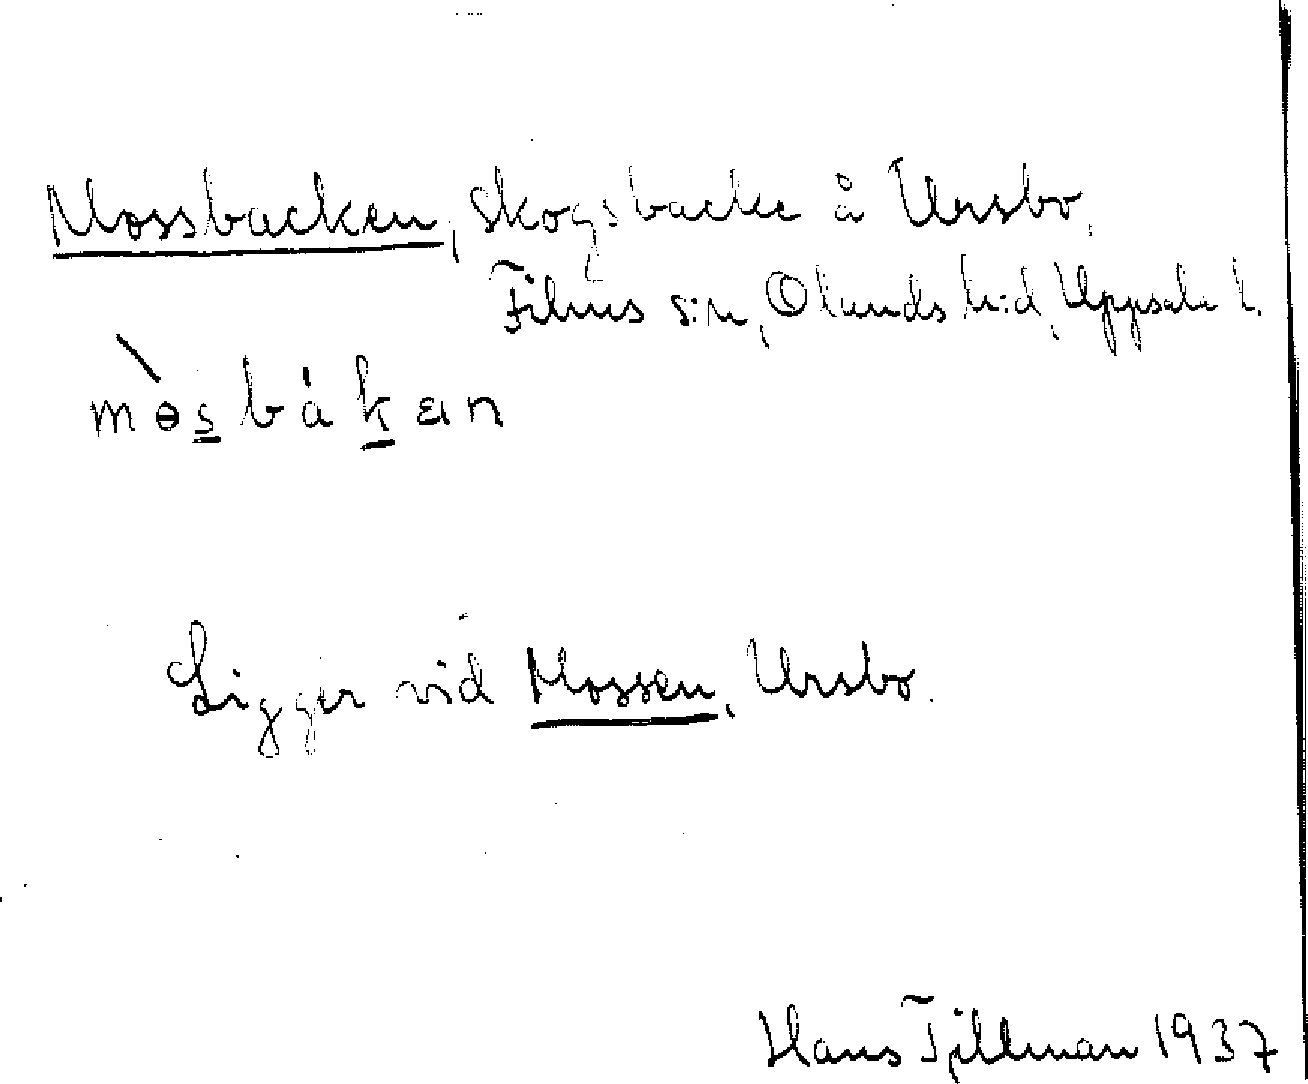 Mossbacken, skogsbacke å Ursbo,
Films s:n, Olands h:d, Uppsala l.
mɵ̀sbákan
Ligger vid Mossen, Ursbo.
Hans Tjillman 1937